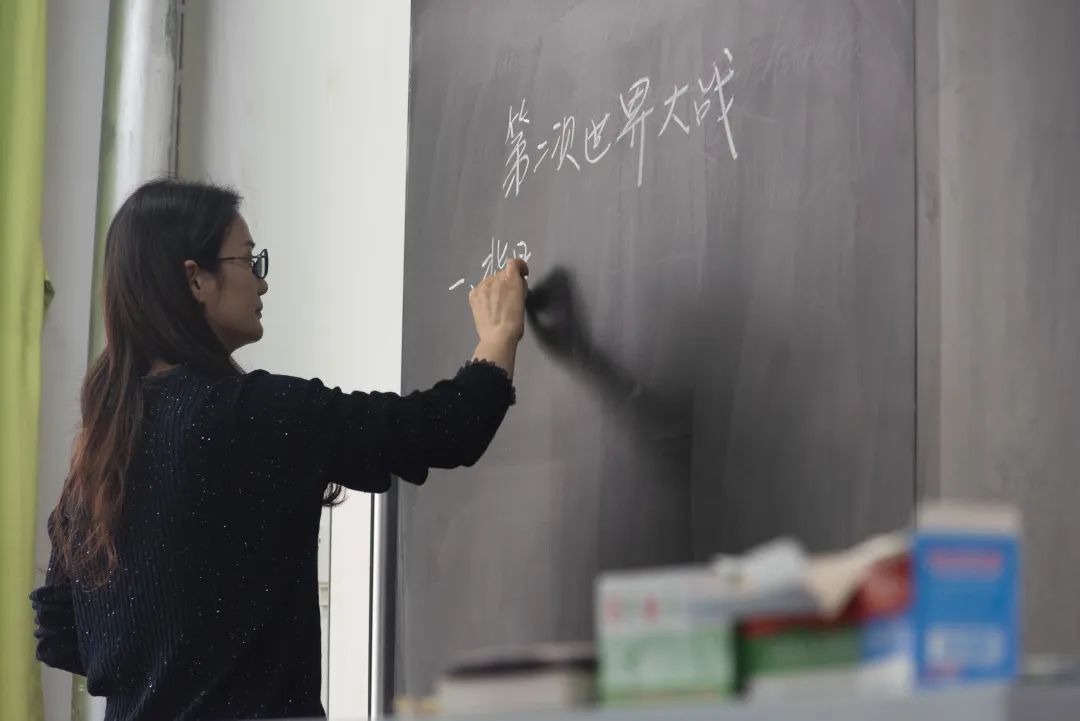 第二次世界大战
一、